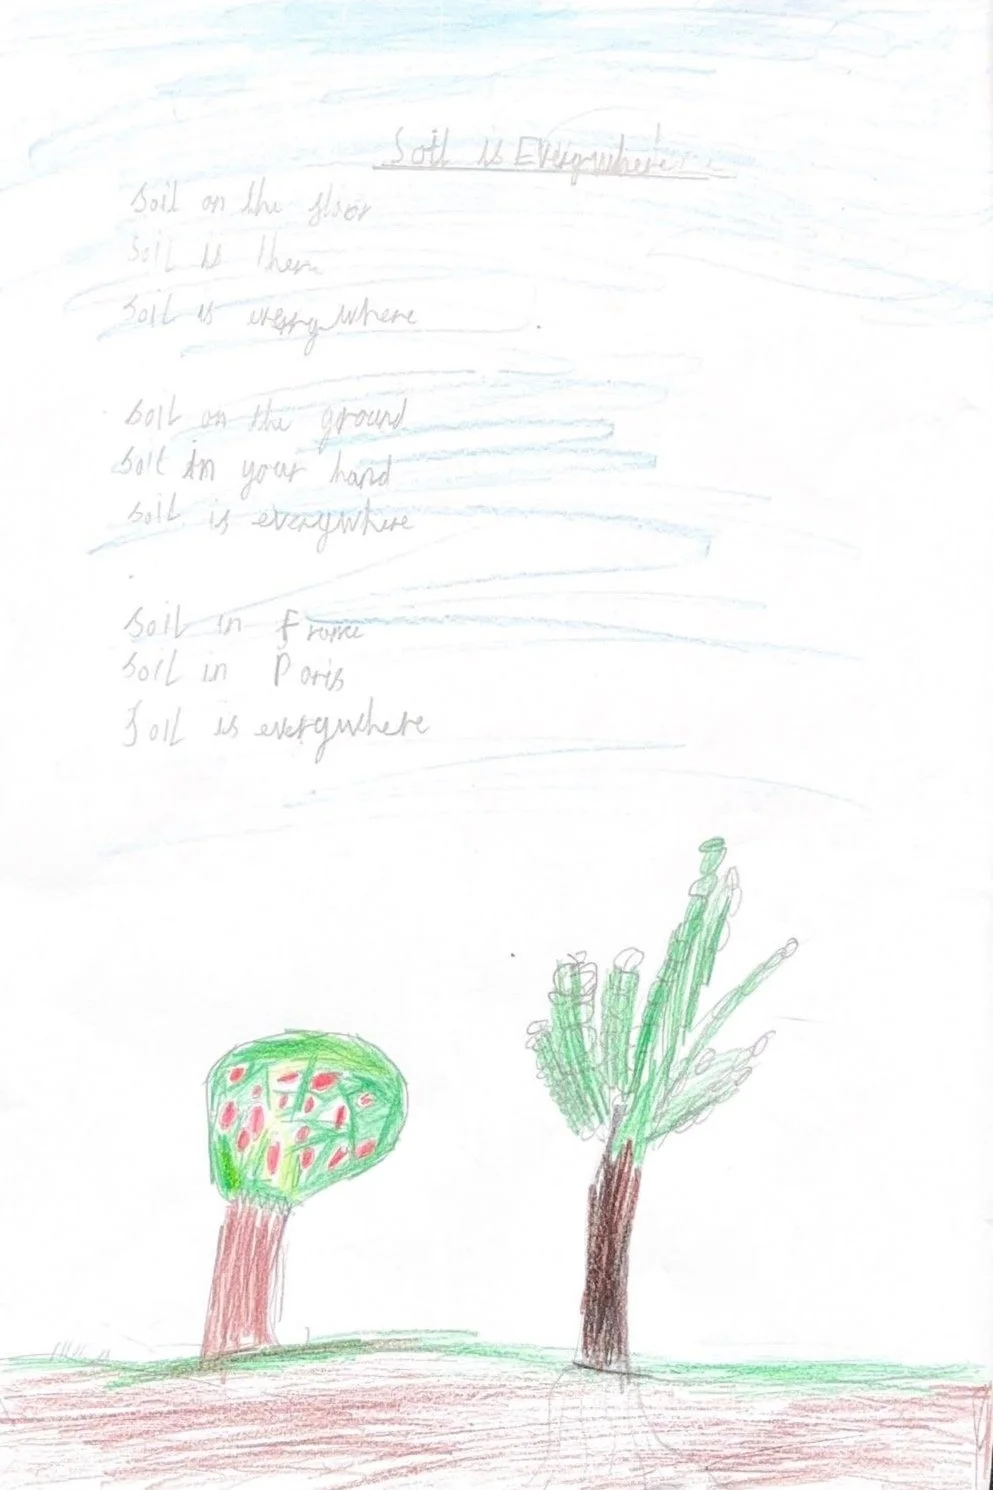 Soil is Everywhere
Soil on the floor
Soil is there
Soil is everywhere
Soil on the ground
Soil in your hand
Soil is everywhere
Soil in France
Soil in Paris
Soil is everywhere